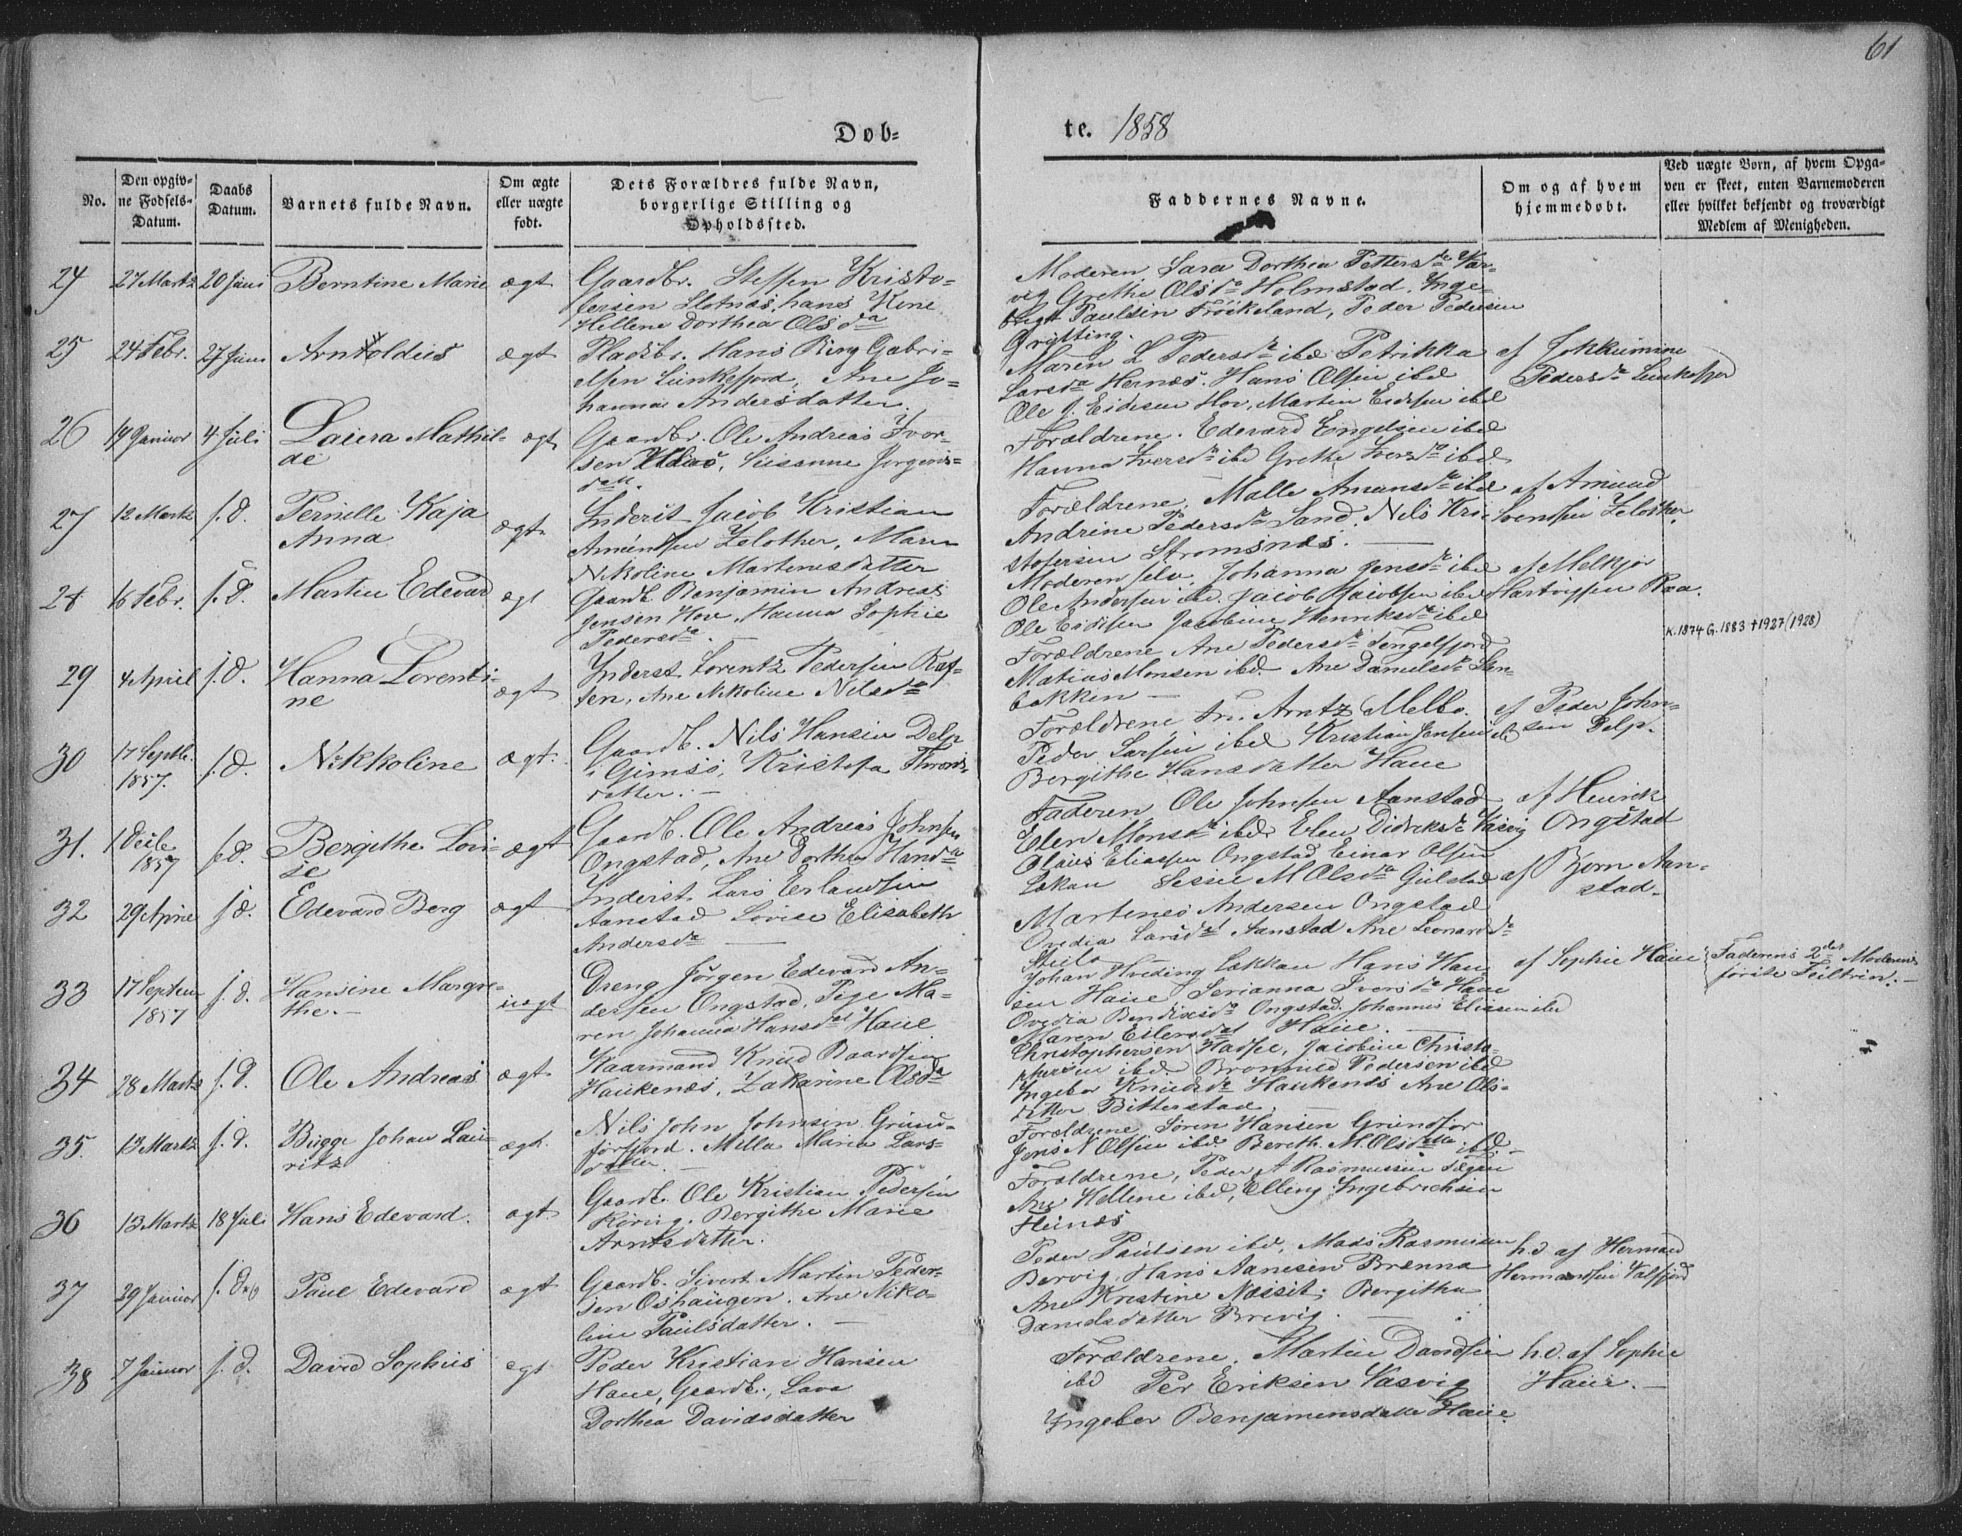 61
Dob-
te. 1858
No.
Den opgiv-
ne Fødsels-
Datum.
Daabs
Datum.
Barnets fulde Navn.
Om ægte
eller uægte
født.
Dets Forældres fulde Navn,
borgerlige Stilling og
Opholdssted.
Faddernes Navne.
Om og af hvem
hjemmedøbt.
Ved uægte Børn, af hvem Opga-
ven er skeet, enten Barnemoderen
eller hvilket bekjendt og troværdigt
Medlem af Menigheden.
24 27 Martz 20 Juni Berntine Marie ægt
Gaardbr. Steffen Kristo-
fersen Slotnæs, hans Kone
Hellene Dorthea Olsda
Moderen Sara Dorthea Pettersdr Var-
vig Grethe Olsdr Holmstad. Inge-
brigt Paulsin Frøskeland, Peder Pedersen
Grytting.
25 24 Febr. 27 Juni Arntoldus ægt
Pladsbr. Hans Ring Gabri-
elsen Lunkefjord, Ane Jo-
hanna Andersdatter.
Maren L Pedersdr ibd Petrikka
Larsda Hernæs. Hans Olsen ibd
Ole J. Eidisen Hov, Martin Eidisen ibd
af Jokkumine
Pedersdr Lunkefjor
26 19 Januar 4 Juli Laura Mathil-
de
ægt
Gaardbr. Ole Andreas Ivor-
sen, Susanne Jørgens-
datt.
Forældrene. Edevard Engelsen ibd
Hanna Iversdr ibd Grethe Iversdr ibd
27 12 Martz s. d. Pernille Kaja
Anna
ægt.
Inderst Jacob Kristian
Amundsen Zelother, Maren
Nikoline Martinusdatter
Forældrene, Malle Amunsdr ibd
Andrine Pedersdr Sand. Nils Kri-
stofersen Stromsnæs.
af Amund
Svensen Zelother.
28 16 Febr. s. d. Martin Edevard ægt
Gaardb. Benjamin Andreas
Jensen Hov, Hanna Sophie
Pedersdr.
Moderen selv. Johanna Jensdr ibd
Ole Andersen ibd. Jacob Jacobsen ibd
Ole Eidisen Jacobine Henriksdr ibd
af Melkjor
Hartvigsen Raa.
29 4 April s. d. Hanna Lorenti-
ne
ægt
Inderst Lorentz Pedersen Raf-
sen, Ane Nikoline Nilsda
Forældrene Ane Pedersdr Tengelfjord
Matias Monsen ibd. Ane Danielsdr San-
bakken
K. 1874 G. 1883 † 1927 (1928)
30 17 Septbr.
1857.
s. d. Nikkoline ægt.
Gaardb. Nils Hansen Delp
i Gimsø, Kristofa Throns-
datter.
Forældrene Fru Arntz Melbo.
Peder Larsen ibd Kristian Jensen
Bergithe Hansdatter Haue
af Peder John-
sen Delp.
31. 1 Desbr
1857
s. d. Bergithe Lovi-
se
ægt
Gaardb. Ole Andreas Johnsen
Ongstad, Ane Dorthea Hansdr
Faderen, Ole Johnsen Aanstad
Elen Monsdr ibd, Elen Didriksdr Vasvig
Olaus Eliassen Ongstad Einar Olsen
Lækan Sessel M Olsda Gulstad
af Henrik
Ongstad
32 29 April s d. Edevard Berg ægt
Inderst Lars Erlandsen
Aanstad Lovise Elisabeth
Andersdr
Martines Andersen Ongstad
Ovedia Larsda Aanstad Ane Leonardsdr
Steilo
af Bjørn Aan-
stad.
33 17 Septem
1857
s. d. Hansine Margre-
the.
uægt
Dreng Jørgen Edevard An-
dersen Ongstad, Pige Ma-
ren Johanna Hansdr Haue
Johan Hveding Løkkan Hans Han-
sen Haue Serianna Iversdr Haue
Ovedia Bendixsdr Ongstad Johannes Eliassen ibd
Maren Eilersdat Haue.
af Sophie Haue
Faderens 2den Moderens
første Feiltrin.
34 28 Martz s. d. Ole Andreas ægt
Haarmand Knud Baardsen
Haukenæs, Zakarine Olsda
Christophersen Hadsel, Jacobine Christo-
phersen ibd Brønmud Pedersen ibd
Ingebor Knudsdr Haukenæs Ane Ols-
datter Bitterstad.
35. 13 Martz s. d. Bugge Johan Lau-
ritz
ægt.
Nils John Johnsen Grund-
førfjord. Milla Maria Lars-
datter.
Forældrene, Søren Hansen Grundfør
Jens N Olsen ibd. Bereth. M. Olsdatter ibd.
36 13 Martz 18 Juli Hans Edevard. ægt.
Gaardb. Ole Kristian Pedersen
Røring. Bergithe Marie
Arntsdatter.
Forældrene, Peder A Rasmussen
Ane Hellene ibd, Elling Ingebrichsen
Flunæs
37 29 Januar s. d. Paul Edevard ægt
Gaardb. Sivert Martin Peder-
sen Oshaugen. Ane Niko-
line Paulsdatter.
Peder Paulsen ibd, Mads Rasmussen
Bervig, Hans Aanesen Brænna
Ane Kristine Næssit, Bergitha
Danielsdatter Brevig.
h. d af Hermand
Hermandsen Valfjord
38 7 Januar s. d. David Sophus ægt
Peder Kristian Hansen
Haue, Gaardb., Lava
Dorthea Davidsdatter
Forældrene. Martin Davidsen
ibd Per Eriksen Vasvig
Ingebor Benjamensdatter Haue.
h. d. af Sophie
Haue.